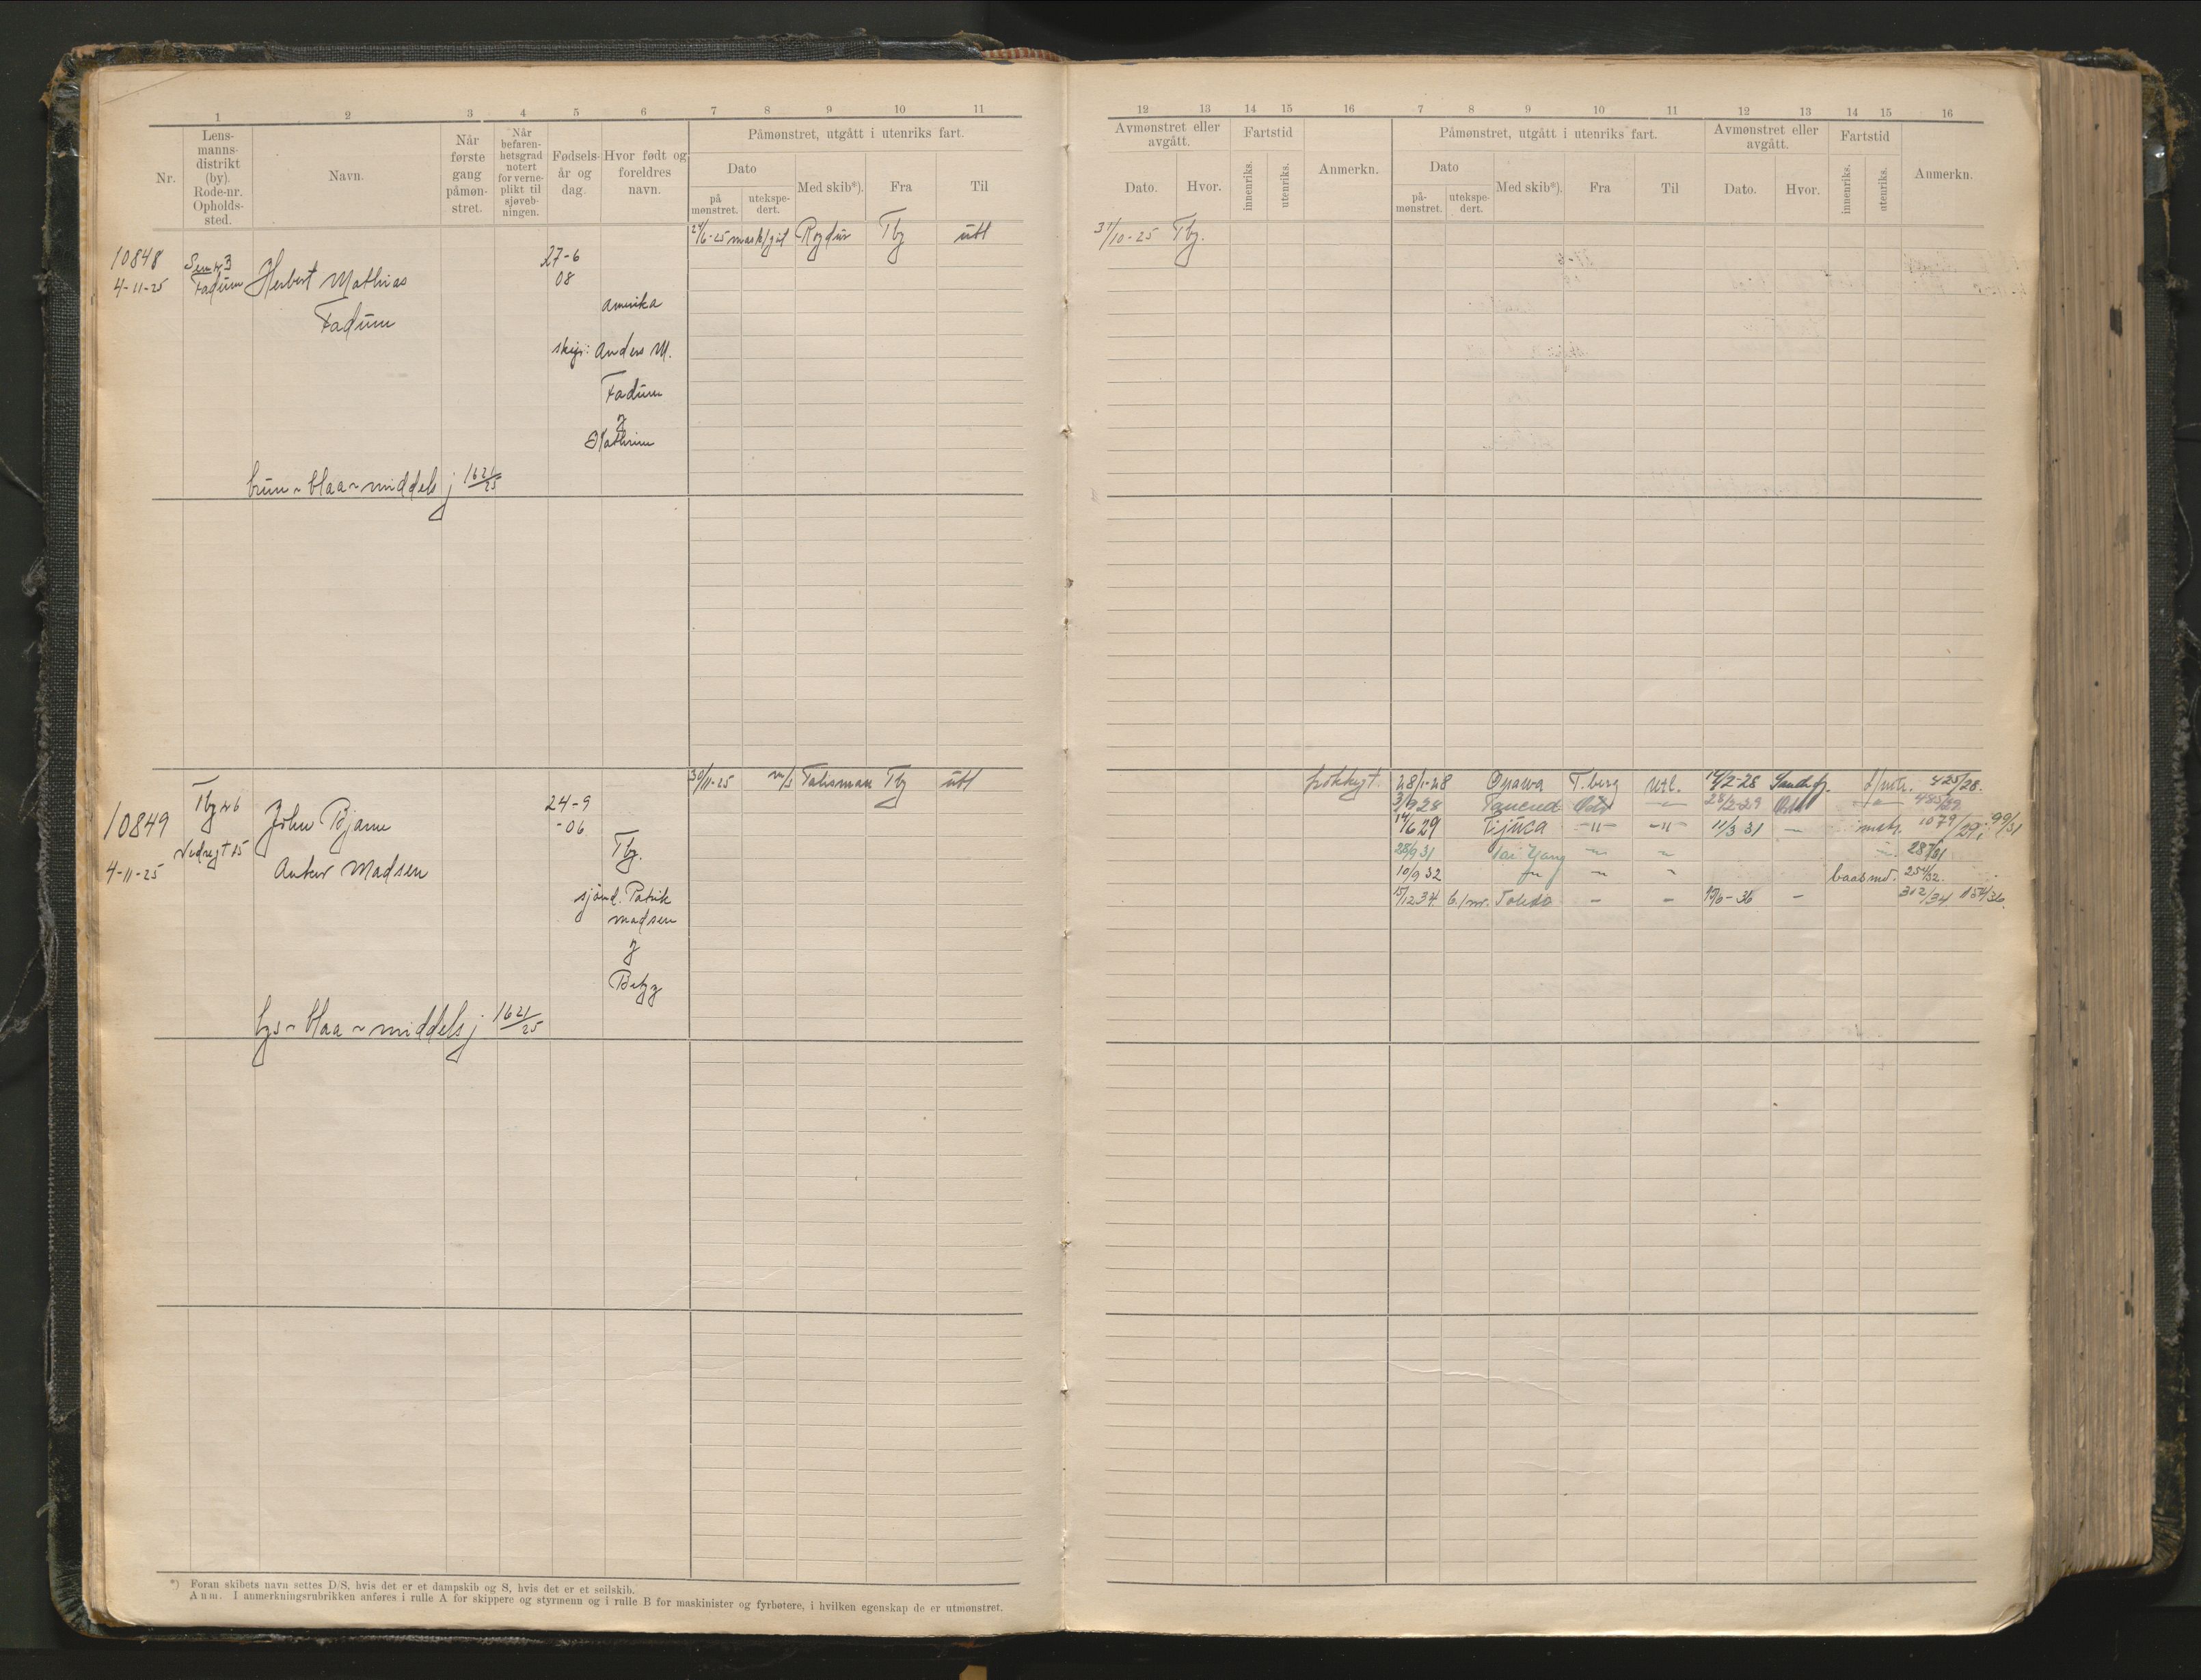 1 2 3 4 5 6 7 8 9 10 11
Nr.
Lens-
manns-
distrikt
(by).
Rode-nr.
Opholds-
sted.
Navn.
Når
første
gang
påmøn-
stret.
Når
befaren-
hetsgrad
notert
for verne-
plikt til
sjøveb-
ningen.
Fødsels-
år og
dag.
Hvor født og
foreldres
navn.
Påmønstret, utgått i utenriks fart.
Dato
på
mønstret.
utekspe-
dert.
Med skib*).
Fra
Til
10848
4-11-25
Sem 3
Fadum
Herbert Mathias
Fadum
27-6
08
Amerika
Anders M.
Fadum
Kathrine
brun - blaa - middels j 1621/25
Tbg utl
10849
4-11-25
Tbg
John Bjarne
Madsen
24-9
-06
Tbg.
sjømd. Patrik
Madsen
lys - blaa - middels j 1621/25
30/11-25 m/s Talisman Tbg utl
*) Foran skibets navn settes D/S, hvis det er et dampskib og S, hvis det er et seilskib.
Anm. I anmerkningsrubrikken anføres i rulle A for skippere og styrmenn og i rulle B for maskinister og fyrbøtere, i hvilken egenskap de er utmønstret.
12 13 14 15 16 7 8 9 10 11 12 13 14 15 16
Avmønstret eller
avgått.
Dato.
Hvor.
Fartstid
innenriks.
utenriks.
Anmerkn.
Påmønstret, utgått i utenriks fart.
Dato
på-
mønstret.
utekspe-
dert.
Med skib*).
Fra
Til
Avmønstret eller
avgått.
Dato.
Hvor.
Fartstid
innenriks.
utenriks.
Anmerkn.
31/10-25 Tbg.
28/1-28 Opawa T.berg Utl. 14/2-28 425/28.
Tancred Oslo 28/2-29 Oslo
14/6 29 Tijuca -"- -"- 11/3 31 — 1079/29, 99/31
28/9 31 Tai Yang
10/9 32 254/32.
15/12 34 Toledo - - - 312/34 154/36.